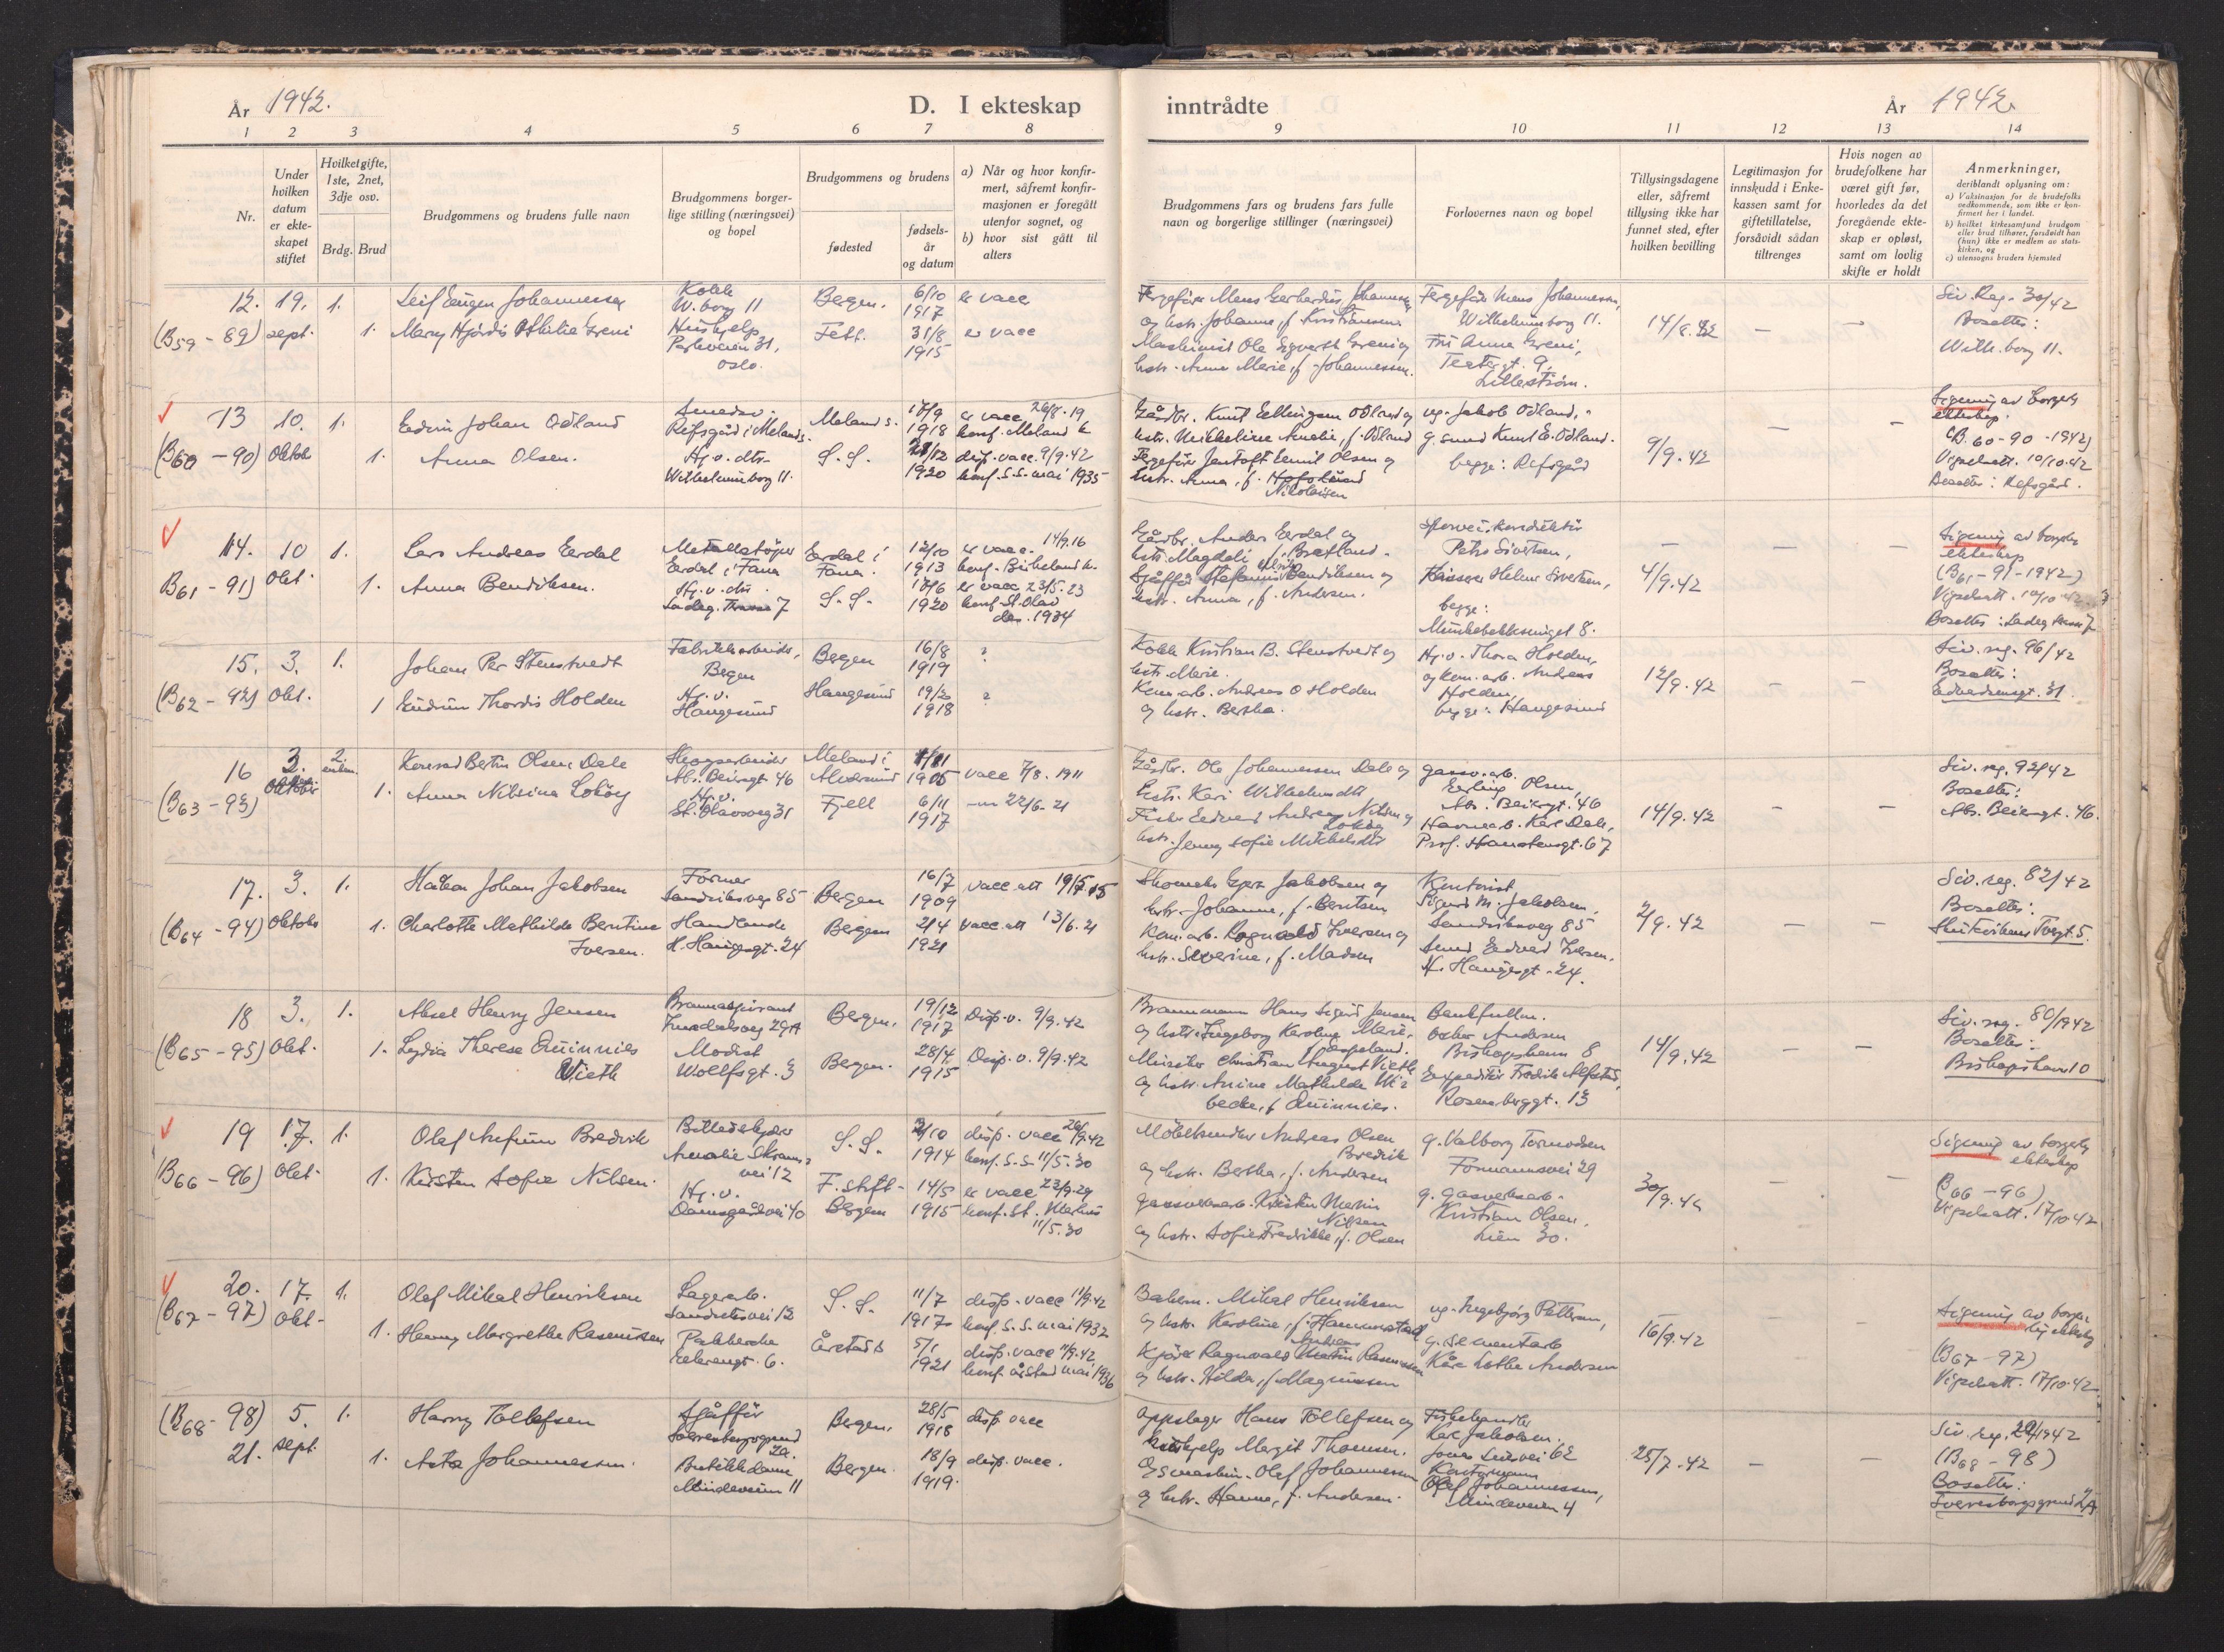 År 1942.
D. I ekteskap
inntrådte
År 1942.
1 2 3 4 5 6 7 8
9 10 11 12 13 14
Nr.
Under hvilken datum er ekte-skapet stiftet
Hvilket gifte, 1ste, 2net, 3dje osv.
Brdg. Brud
Brudgommens og brudens fulle navn
Brudgommens borger-lige stilling (næringsvei) og bopel
Brudgommens og brudens
fødested
fødsels-år og datum
a) Når og hvor konfir-mert, såfremt konfir-masjonen er foregått utenfor sognet, og
b) hvor sist gått til alters
Brudgommens fars og brudens fars fulle navn og borgerlige stillinger (næringsvei)
Forlovernes navn og bopel
Tillysingsdagene eller, såfremt tillysing ikke har funnet sted, efter hvilken bevilling
Legitimasjon for innskudd i Enke-kassen samt for giftetillatelse, forsåvidt sådan tiltrenges
Hvis nogen av brudefolkene har været gift før, hvorledes da det foregående ekte-skap er opløst, samt om lovlig skifte er holdt
Anmerkninger,
deriblandt oplysning om:
a) Vaksinasjon for de brudefolks vedkommende, som ikke er kon-firmert her i landet.
b) hvilket kirkesamfund brudgom eller brud tilhører, forsåvidt han (hun) ikke er medlem av stats-kirken, og
c) utensogns bruders hjemsted
12. 19. 1. Leif Eugen Johannessen
Kokk
W.borg 11
Bergen. 6/10 1917 er vacc
(B59 - 89) sept. 1. Mary Hjørdis Othilie
Hushjelp
Parkveien 31, Oslo.
Fett. 31/8 1915 er vacc
Fergefører Mons Gerhardus Johannessen
og hstr. Johanne, f. Kristiansen.
Maskinist Ole Sigvarth
hstr. Anna Marie, f. Johannessen.
Fergefør. Mons Johannessen,
Wilhelminborg 11.
Frk Anna
Teatergt. 9,
Lillestrøm.
14/8.42
— —
Siv. Reg. 30/42
Bosettes:
Wilh.borg 11.
13 10. 1. Edvin Johan Odland
Refsgård i Meland s.
Meland s. 17/9 1918 er vacc 26/8.19
konf. Meland k.
(B60 - 90) Oktob. 1. Anna Olsen.
Hj.v. dtr.
Wilhelminborg 11.
S.S. 21/12 1920 disp. vacc. 9/9.42
konf. S.S. mai 1935
Gårdbr. Knut Ellingsen Odland og
hstr. Mikkeline Amalie, f. Odland
Fergefører Jentoft Emil Olsen og
hstr. Anna, f.
Nikolaisen
ug. Jakob Odland,
g. smed Knut E. Odland.
begge: Refsgård
9/9.42
— —
Signing av borgerlig
ekteskap.
(B.60-90-1942)
Vigselsatt. 10/10.42
Bosettes: Refsgård.
14. 10 1. Lars Andreas Eerdal
Metallstøper
Eerdal i Fana
Eerdal i Fana. 12/10 1913 er vacc. 14/9.16
konf. Birkeland k.
B61 - 91) Okt. 1. Anna Bendiksen.
Hj.v. dtr.
Ladeg. Terrasse 7
S.S. 17/6 1920 er vacc 23/5.23
konf. St. Olav
des. 1934
Gårdbr. Anders Eerdal og
hstr. Magdeli, f. Bratland.
Sjåfør Stefanus Bendiksen og
hstr. Anna, f. Andersen.
Sporvei.konduktør
Petro Sivertsen,
Kasserer Helmer Sivertsen,
begge:
Munkebekksmuget 8.
4/9.42
— — —
Signing av borgerlig
ekteskap
(B61-91-1942)
Vigselsatt. 10/10.42.
Bosettes: Ladeg. terrasse 7
15. 3. 1. Johan Per Stenstvedt
Fabrikkarbeider,
Bergen
Bergen 16/8 1919 ?
(B62 - 92) Okt. 1 Gudrun Thordis Holden
Hj.v.
Haugesund
Haugesund 19/2 1918 ?
Kokk Kristian B. Stenstvedt og
hstr. Marie.
Kom.arb. Andreas O Holden
og hstr. Bertha.
Hj.v. Thora Holden,
og kom.arb. Andreas
Holden,
begge: Haugesund
12/9.42
— —
Siv. reg. 96/42
Bosettes:
Edvardsensgt. 31.
16 3. 2. enkem. Konrad Bertin Olsen Dale
Skogsarbeider
Abs. Beiersgt 46
Meland i Alversund 1/11 1905 vacc 7/8.1911
(B63 - 93) Oktober 1. Anna Nilsina Lokøy
Hj.v.
St. Olavsveg 31
Fjell 6/11 1917 -"- 22/6.21
Gårdbr. Ole Johannessen Dale og
hstr. Kari Wilhelmsdtr
Fisker Edvard Andreas Nilsen
Lokøy
hstr. Jenny Sofie Mikkelsdtr
gassv.arb.
Erling Olsen,
Abs. Beiersgt. 46
Havnearb. Kåre Dale,
Prof. Hansteensgt. 67
14/9.42
— —
Siv. reg. 92/42
Bosettes:
Abs. Beiersgt. 46.
17. 3. 1. Håkon Johan Jakobsen
Former
Sandviksveg 85
Bergen 16/7 1909 vacc.att 19/5.15
(B64 - 94) Oktober 1. Charlotte Mathilde Berntine
Iversen.
H. Haugesgt. 24
Bergen 21/4 1921 vacc.att 13/6.21
Jakobsen og
hstr. Johanne, f. Berntsen
Kom.arb. Ragnvald Iversen og
hstr. Severine, f. Madsen
Kontorist
Sigurd M. Jakobsen,
Sandviksveg 85
Smed Edvard Iversen,
H. Haugesgt. 24.
2/9.42
— —
Siv. reg. 82/42
Bosettes:
18 3. 1. Aksel Henry Jensen
Brannaspirant
29A
Bergen. 19/12 1917 Disp. v. 9/9.42
(B65 - 95) Okt. 1. Lydia Therese Quinnies
Wieth
Modist
Wolffsgt. 3
Bergen. 28/4 1915 Disp. v. 9/9.42
Brannmann Hans Sigurd Jensen
og hstr. Ingeborg Karoline Marie,
Christian August Vieth
og hstr. Anine Mathilde
f Quinnies.
Bankfullm.
Oskar Andersen
Bishopshavn 8
Ekspeditør Fredrik Alfstad,
Rosenberggt. 13
14/9.42
— —
Siv. reg. 80/1942
Bosettes:
Biskopshavn 10
19 17. 1. Olaf Bredvik
Billedskjærer
Amalie Skrams
vei 12
S.S. 2/10 1914 disp. vacc 26/9.42
konf. S.S. 11/5.30
B66 - 96) Okt. 1. Kirsten Sofie Nilsen.
Hj.v.
Damsgårdvei 40
F.stift. Bergen 14/5 1915 er vacc 23/9.29
konf. St. Markus
11/5.30
Møbelsnedker Andreas Olsen
Bredvik
og hstr. Bertha, f. Andersen
gassverksarb. Kristen Marin
Nilsen
og hstr. Sofie Fredrikke, f. Olsen
g. Valborg Tormodsen
Formannsvei 29
g. gasverksarb.
Kristian Olsen,
Lien 30.
30/9.42
— —
Signing av borgerlig
ekteskap
B66 - 96)
Vigselsatt. 17/10.42
20. 17. 1. Olaf Mikal Henriksen
Lagerarb.
12
S.S. 11/7 1917 disp. vacc 11/9.42
konf. S.S. mai 1932
(B67 - 97) Okt. 1. Henny Margrethe Rasmussen
6.
Årstad s 5/1 1921 disp. vacc 11/9.42
konf. årstad mai 1936
Mikal Henriksen
og hstr. Karoline, f. Hammerstad
Kjører Ragnvald Rasmussen
og hstr. Hilda, f. Magnussen
ug. Ingebjørg Pettersen,
g. sementarb
Kåre Lothe Andersen
16/9.42
— —
Signing av borger
lig ekteskap
(B67 - 97)
Vigselsatt. 17/10.42.
(B68 - 98) 5. 1. Harry Tollefsen
Sjåffør
Sverresborgsgrend
2A.
Bergen. 28/5 1918 disp vacc
21. sept. 1. Asta Johannessen.
Butikkdame
Mindeveien 11
Bergen. 18/9 1919. disp. vacc.
Oppslager Hans Tollefsen og
hushjelp Margit Thomsen.
Olaf Johannessen
og hstr. Hanna, f. Andersen.
Fiskehandler
Kåre Jakobsen.
Jonas Liesvei 62
Kontormann
Olaf Johannessen,
Mindeveien 4
25/7.42
— —
Siv. reg. 29/1942
(B68 - 98)
Bosettes:
Sverresborgsgrend 2A